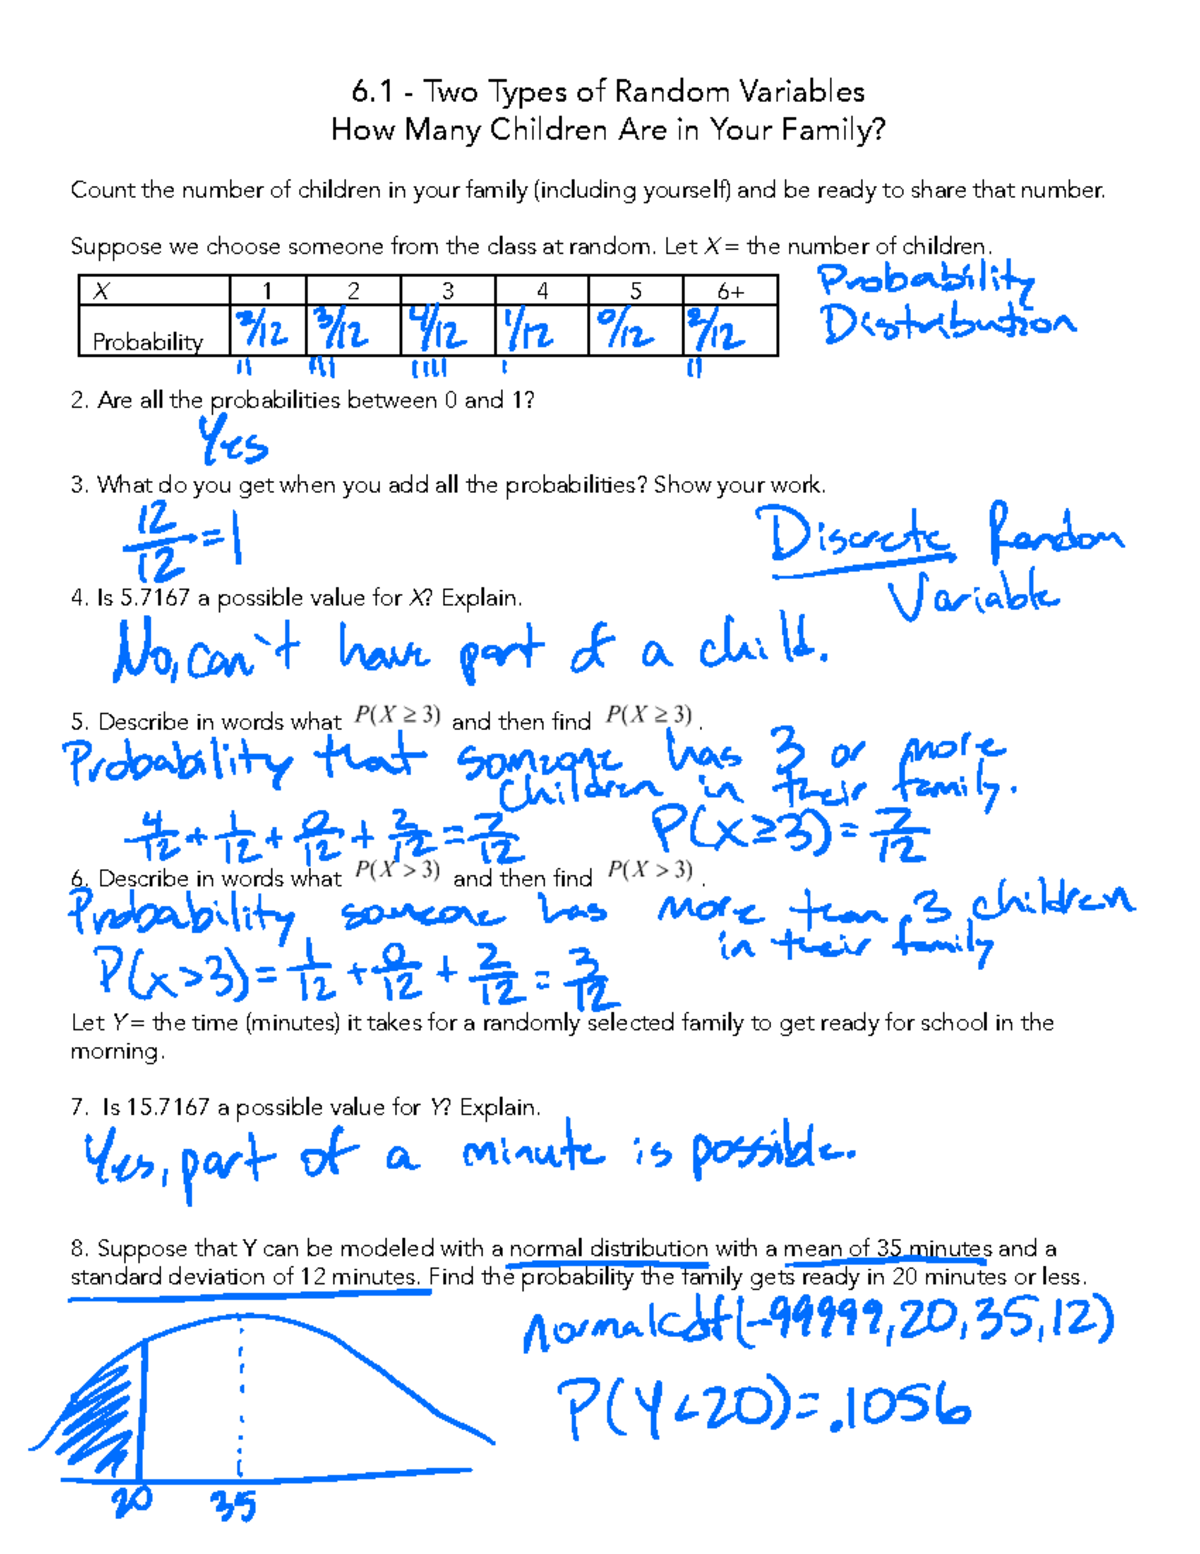 6.1 - Two Types of Random Variables
How Many Children Are in Your Family?
Count the number of children in your family (including yourself) and be ready to share that number.
Suppose we choose someone from the class at random. Let X = the number of children.
X 1 2 3 4 5 6+
Probability 2/12 3/12 4/12 1/12 0/12 2/12
Probability
Distribution
2. Are all the probabilities between 0 and 1?
Yes
3. What do you get when you add all the probabilities? Show your work.
12/12 = 1
Discrete Random
Variable
4. Is 5.7167 a possible value for X? Explain.
No, can't have part of a child.
5. Describe in words what P(X ≥ 3) and then find P(X ≥ 3) .
Probability that someone has 3 or more
children in their family.
4/12 + 1/12 + 0/12 + 2/12 = 7/12 P(X≥3) = 7/12
6. Describe in words what P(X > 3) and then find P(X > 3) .
Probability someone has more than 3 children
in their family
P(x>3) = 1/12 + 0/12 + 2/12 = 3/12
Let Y = the time (minutes) it takes for a randomly selected family to get ready for school in the
morning.
7. Is 15.7167 a possible value for Y? Explain.
Yes, part of a minute is possible.
8. Suppose that Y can be modeled with a normal distribution with a mean of 35 minutes and a
standard deviation of 12 minutes. Find the probability the family gets ready in 20 minutes or less.
normalcdf(-99999,20,35,12)
P(Y<20)=.1056
20 35